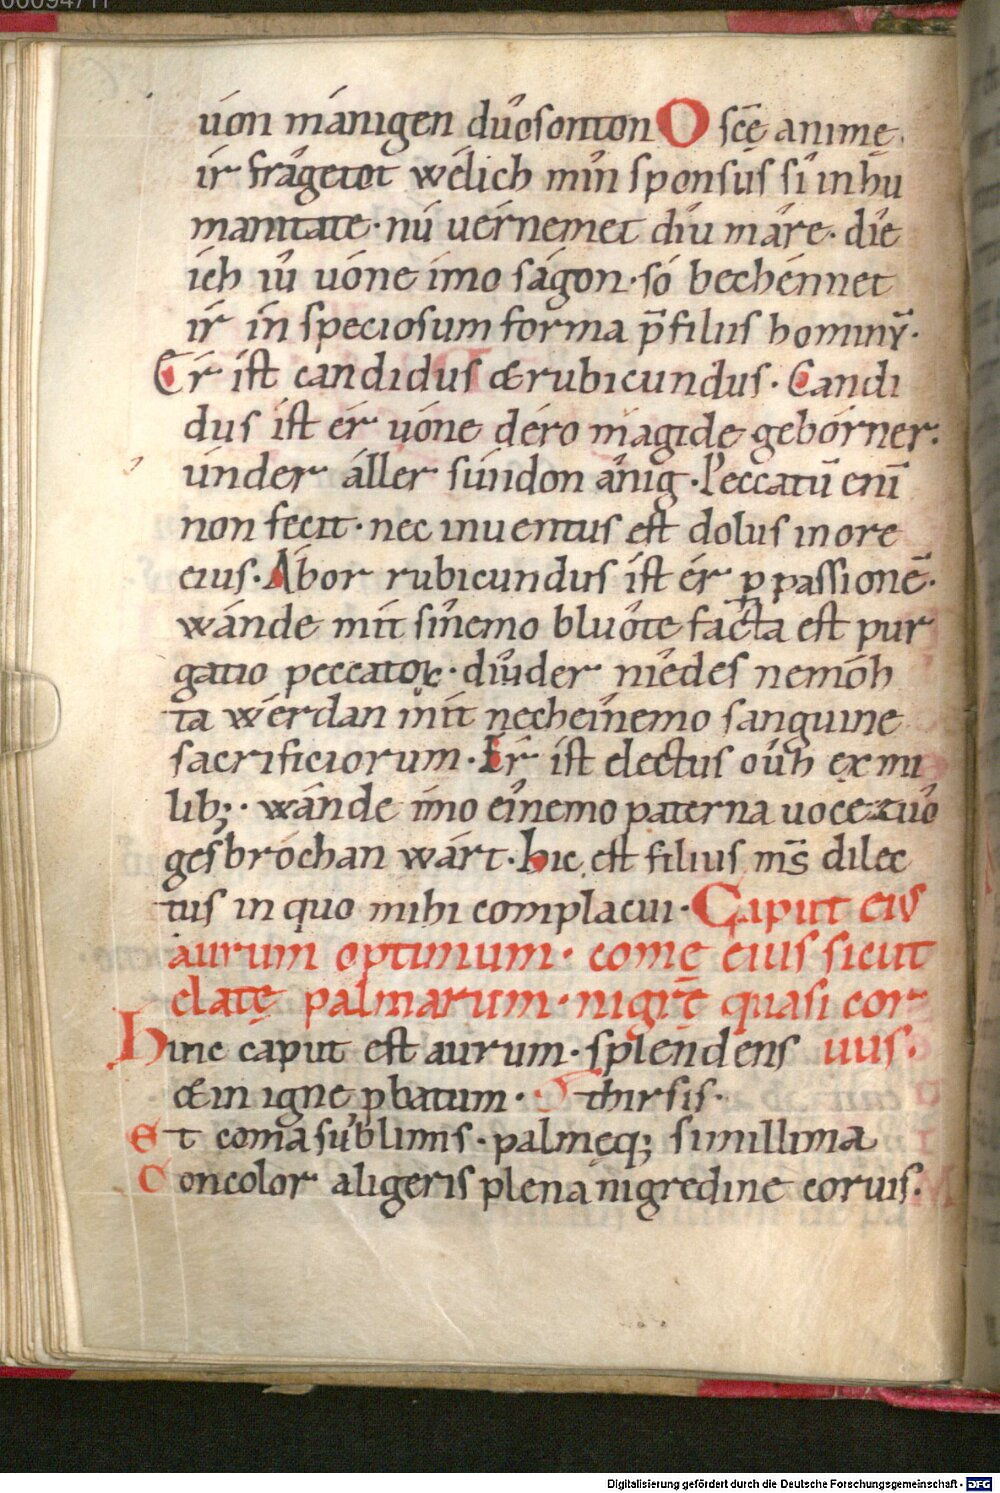 uón mánigen dúosonton O scē animę.
ir frágetot wélich mín sponsus sí in hu
manitate· nú uérnemet díu máre· díe
ich íu uóne ímo ságon· só bechénnet
ír ín speciosum forma p̄ filius hominū·
Er íst candidus & rubicundus· Candi
dus íst ér uóne déro mágide gebórner·
únder áller súndon ánig· Peccatū enī
non fecit· nec inuentus est dolus in ore
eius· Abor rubicundus íst ér ꝑ passionē·
wánde mít sínemo bluóte facta est pur
gatio peccatoꝝ· díuder níedes nemóh
ta wérdan mít necheínemo sanguine
sacrificiorum· Er íst electus óuh ex mi
lib;· wánde ímo eínemo paterna uoce zuó
gesbróchan wárt· hic est filius ms̄ dilec
tus in quo mihi complacui· Caput eius
aurum optimum· comę eius sicut
elatę palmarum· nigrę quasi cor
Hinc caput est aurum· splendens uus·
& in igne ꝓbatum· Thirsis·
Et coma sublimis· palmęq; simillima
Concolor aligeris plena nigredine coruis·
Digitalisierung gefördert durch die Deutsche Forschungsgemeinschaft - DFG